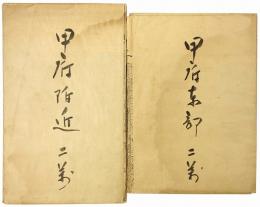 甲府附近 二万
甲府東部 二万